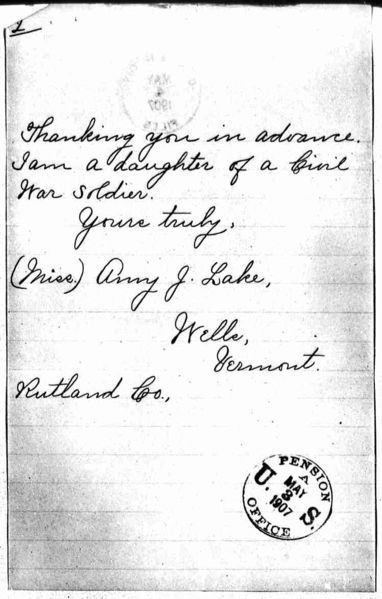 1
Thanking you in advance.
I am a daughter of a Civil
War Soldier.
Yours truly,
(Miss.) Amy J. Lake,
Wells,
Vermont.
Rutland Co.,
U. S. PENSION OFFICE
A
MAY
3
1907